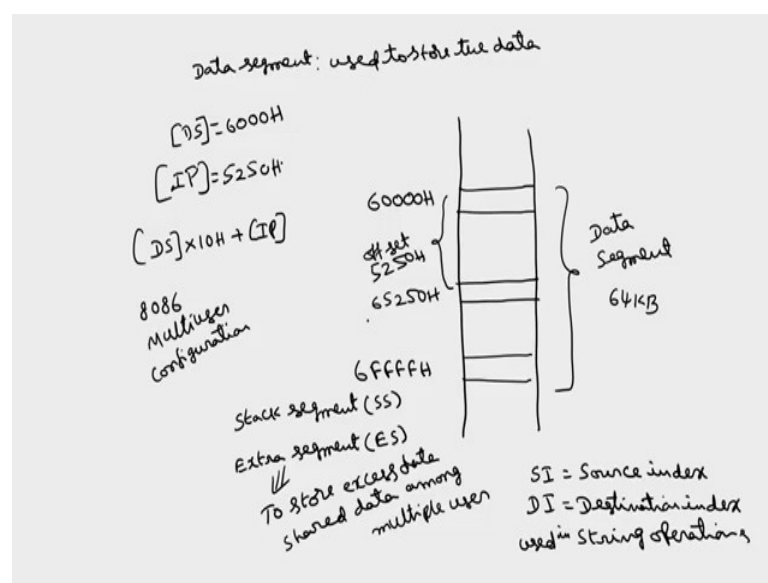 Data segment: used to store the data
[DS]=6000H
[IP]=5250H.
[DS]×10H+[IP]
8086
Multiuser
configuration
60000H
offset
5250H
65250H
6FFFFH
Data
Segment
64KB
Stack segment (SS)
Extra segment (ES)
To store excess data
shared data among
multiple user
SI = Source index
DI = Destination index
used in String operations